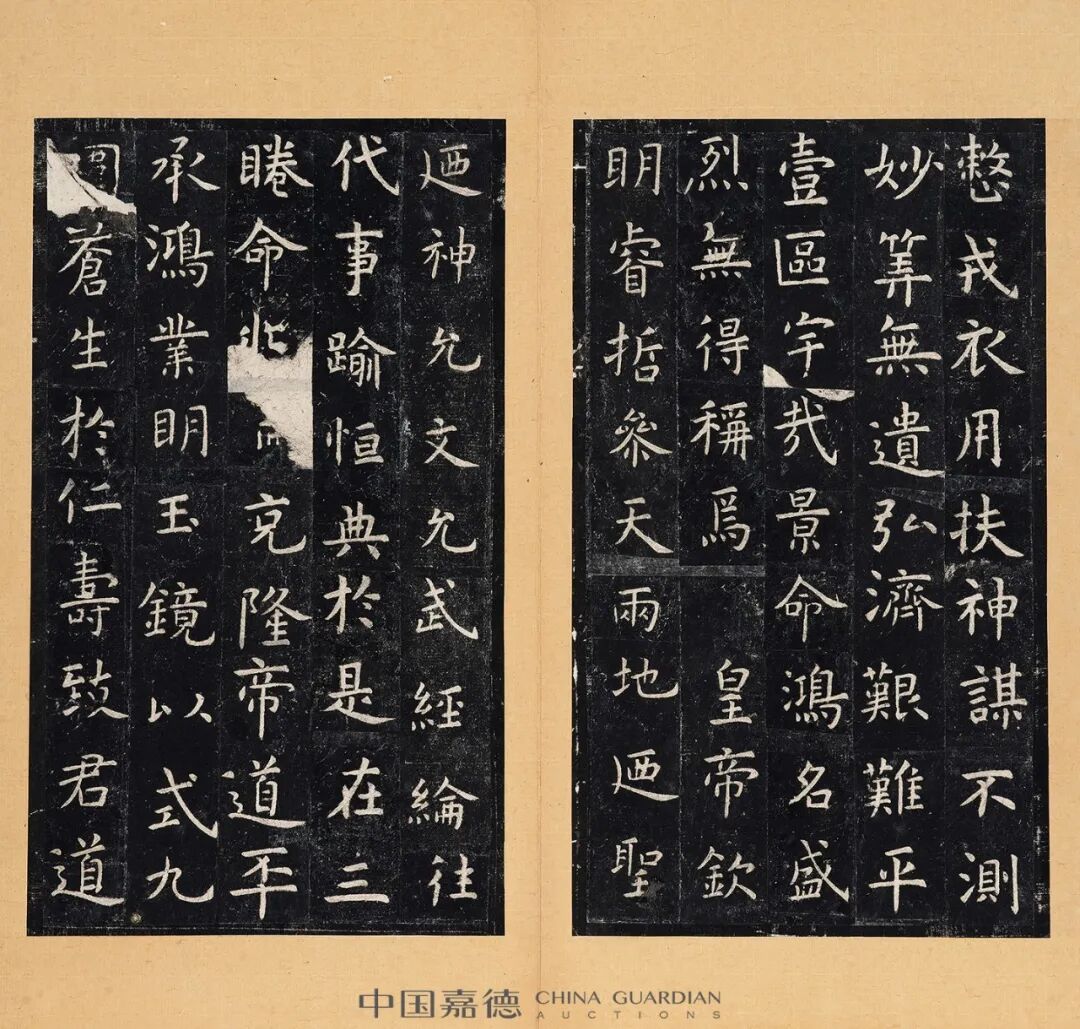 愸戎衣用扶神謀不測
妙筭無遺弘濟艱難平
壹區宇哉景命鴻名盛
烈無得稱焉 皇帝欽
明睿哲參天兩地迺聖
迺神允文允武經綸往
代事踰恒典於是在三
睠命而克隆帝道丕
承鴻業明玉鏡以式九
圍蒼生於仁壽致君道
中国嘉德 CHINA GUARDIAN AUCTIONS